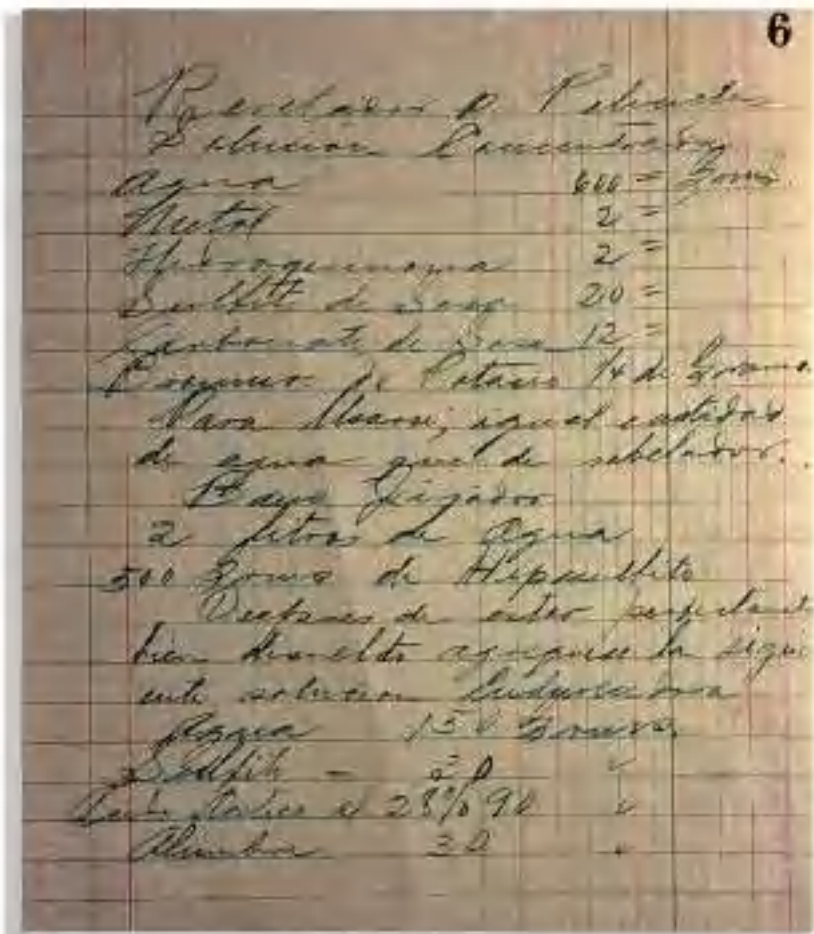 6
Revelador p. Peliculas
Solucion Concentrada
Agua 600 = Grms.
Metol 2 =
Hidroquinona 2 =
Sulfito de Sosa 20 =
Carbonato de Sosa 12 =
Bromuro de Potasio 1/4 de Gramo
Para Usarse, igual cantidad
de agua que de rebelador.
Baño Fijador
2 Litros de Agua
500 Grms de Hiposulfito
Despues de estar perfectamt
bien disuelto agreguese la sigui
ente solucion Endurecedora
Agua 150 Grms.
Sulfito - 20 "
Acido Acetico al 28% 90 "
Alumbre 30 "